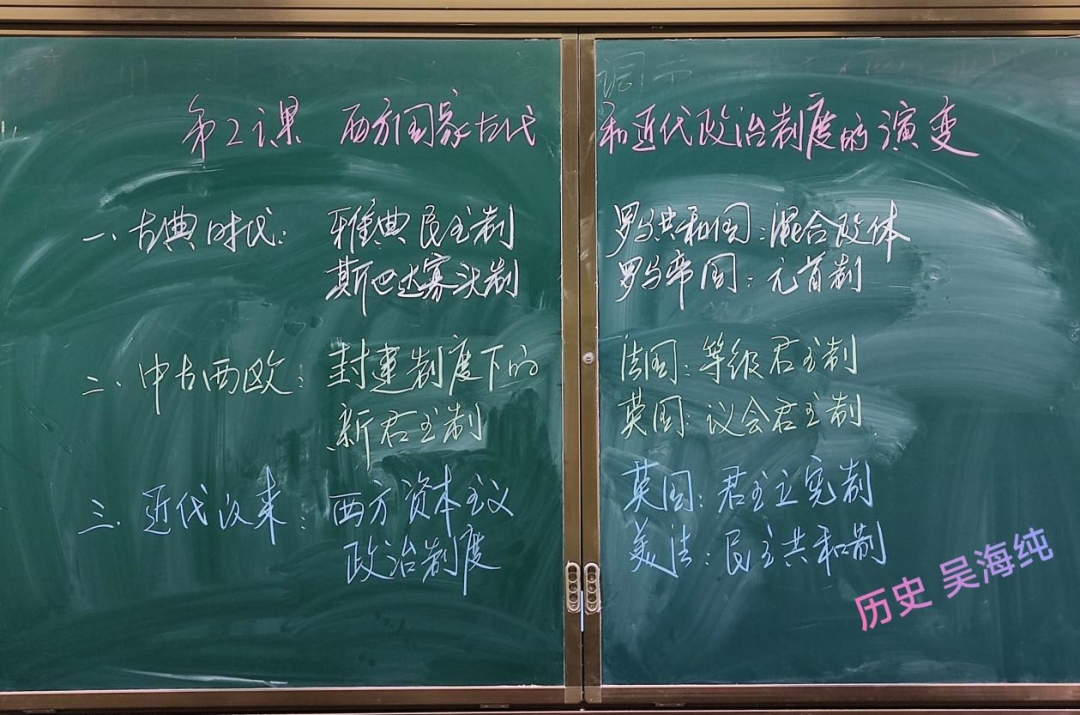 调节
第2课 西方国家古代和近代政治制度的演变
一、古典时代: 雅典民主制 罗马共和国:混合政体
斯巴达寡头制 罗马帝国:元首制
二、中古西欧: 封建制度下的 法国:等级君主制
新君主制 英国:议会君主制
三、近代以来: 西方资本主义 英国:君主立宪制
政治制度 美法:民主共和制
历史 吴海纯